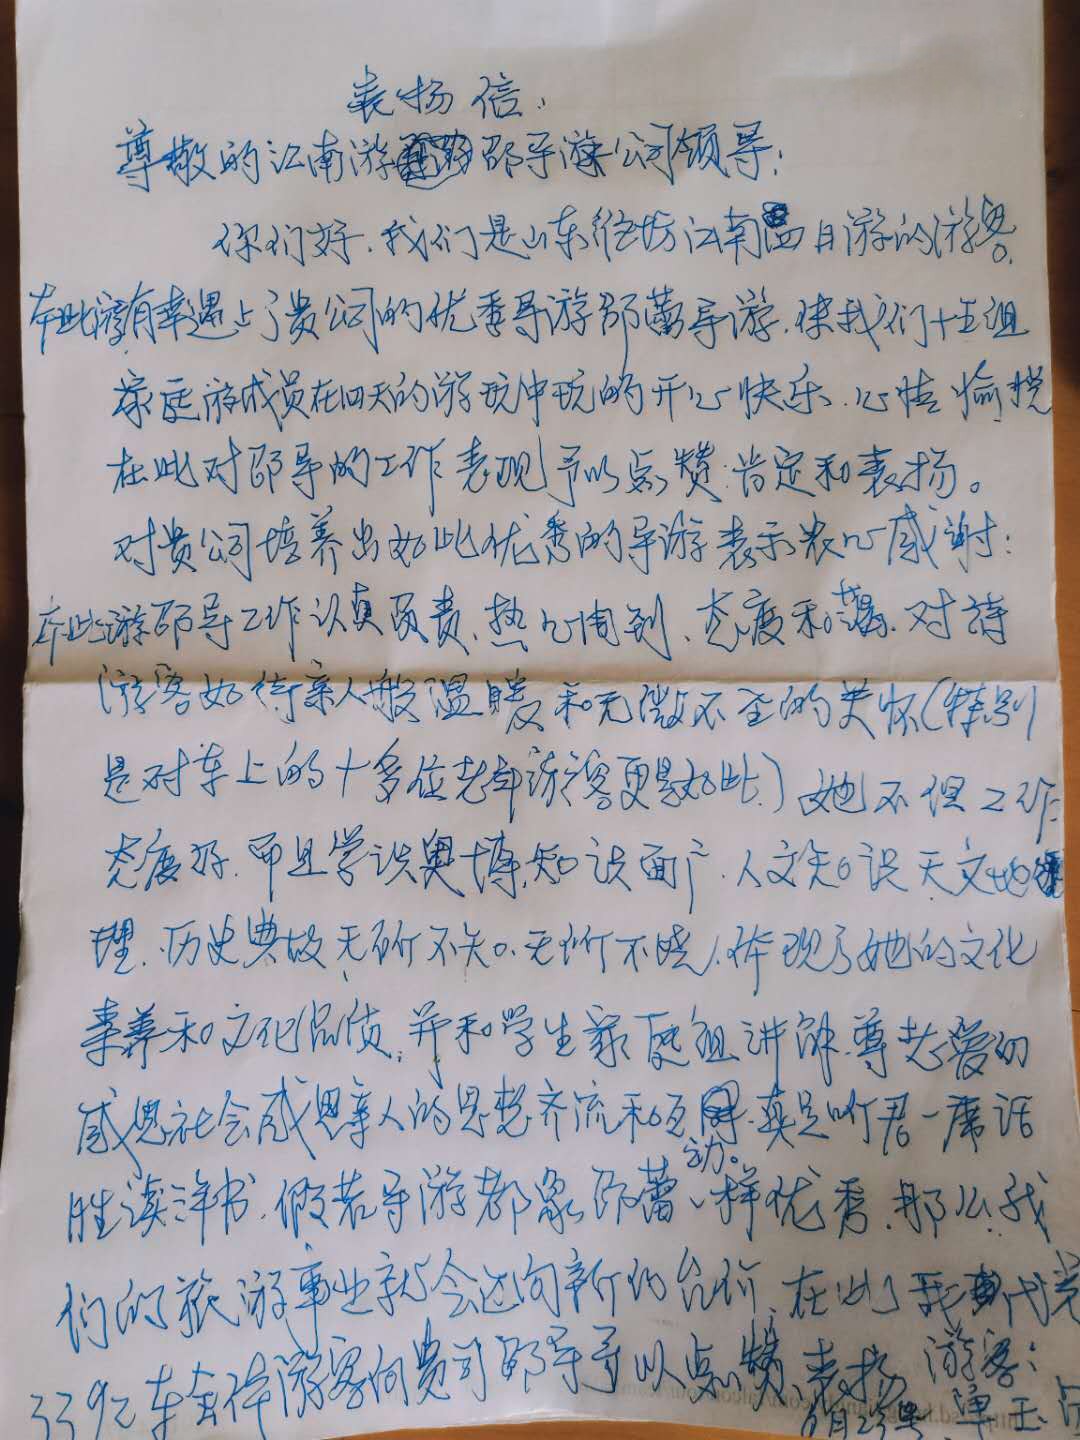 表扬信
尊敬的江南游邵导游公司领导：
你们好，我们是山东潍坊江南四日游的游客。
在此游有幸遇上了贵公司的优秀导游邵蕾导游，使我们十五组
家庭游成员在四天的游玩中玩的开心快乐，心情愉悦
在此对邵导的工作表现予以点赞，肯定和表扬。
对贵公司培养出如此优秀的导游表示衷心感谢：
在此游邵导工作认真负责，热心周到，态度和蔼，对待
游客如待亲人般温暖和无微不至的关怀（特别
是对车上的十多位老年游客更是如此）她不但工作
态度好，而且学识奥博，知识面广，人文知识天文地
理，历史典故无所不知，无所不晓，体现了她的文化
素养和文化品质，并和学生家庭组讲解尊老爱幼
感恩社会感恩亲人的思想交流和互动。真是听君一席话
胜读洋书，假若导游都象邵蕾一样优秀，那么我
们的旅游事业就会迈向新的台阶，在此我代表
3392车全体游客向贵司邵导予以点赞，表扬 游客：